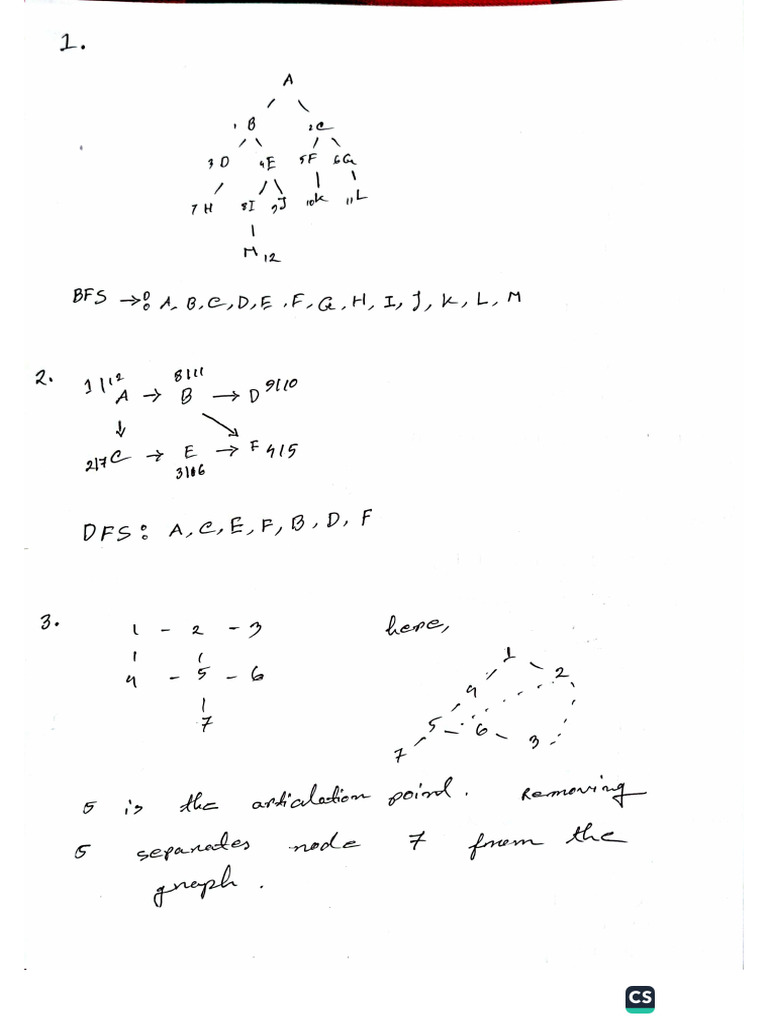 1.
A
1 B 2 C
3 D 4 E 5 F 6 G
7 H 8 I 9 J 10 K 11 L
M 12
BFS →: A, B, C, D, E, F, G, H, I, J, K, L, M
2.
1/12 A → B 8/11 → D 9/10
2/7 C → E 3/6 → F 4/5
DFS: A, C, E, F, B, D, F
3.
1 - 2 - 3
4 - 5 - 6
7
here,
1
2
4
5
6
3
7
5 is the articulation point. Removing
5 separates node 7 from the
graph.
CS